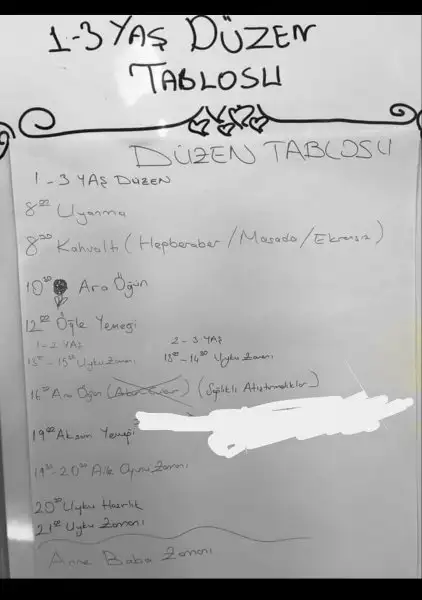 1-3 YAŞ DÜZEN
TABLOSU
DÜZEN TABLOSU
1-3 YAŞ DÜZEN
8⁰⁰ Uyanma
8³⁰ Kahvaltı (Hepberaber/Masada/Ekransız)
10³⁰ Ara Öğün
12⁰⁰ Öğle Yemeği
1-2 YAŞ 2-3 YAŞ
13⁰⁰-15⁰⁰ Uyku Zamanı 13⁰⁰-14³⁰ Uyku Zamanı
16⁰⁰ Ara Öğün (Abur Cubur) (Sağlıklı Atıştırmalıklar)
19⁰⁰ Akşam Yemeği
19³⁰-20³⁰ Aile Oyun Zamanı
20³⁰ Uyku Hazırlık
21⁰⁰ Uyku Zamanı
Anne Baba Zamanı